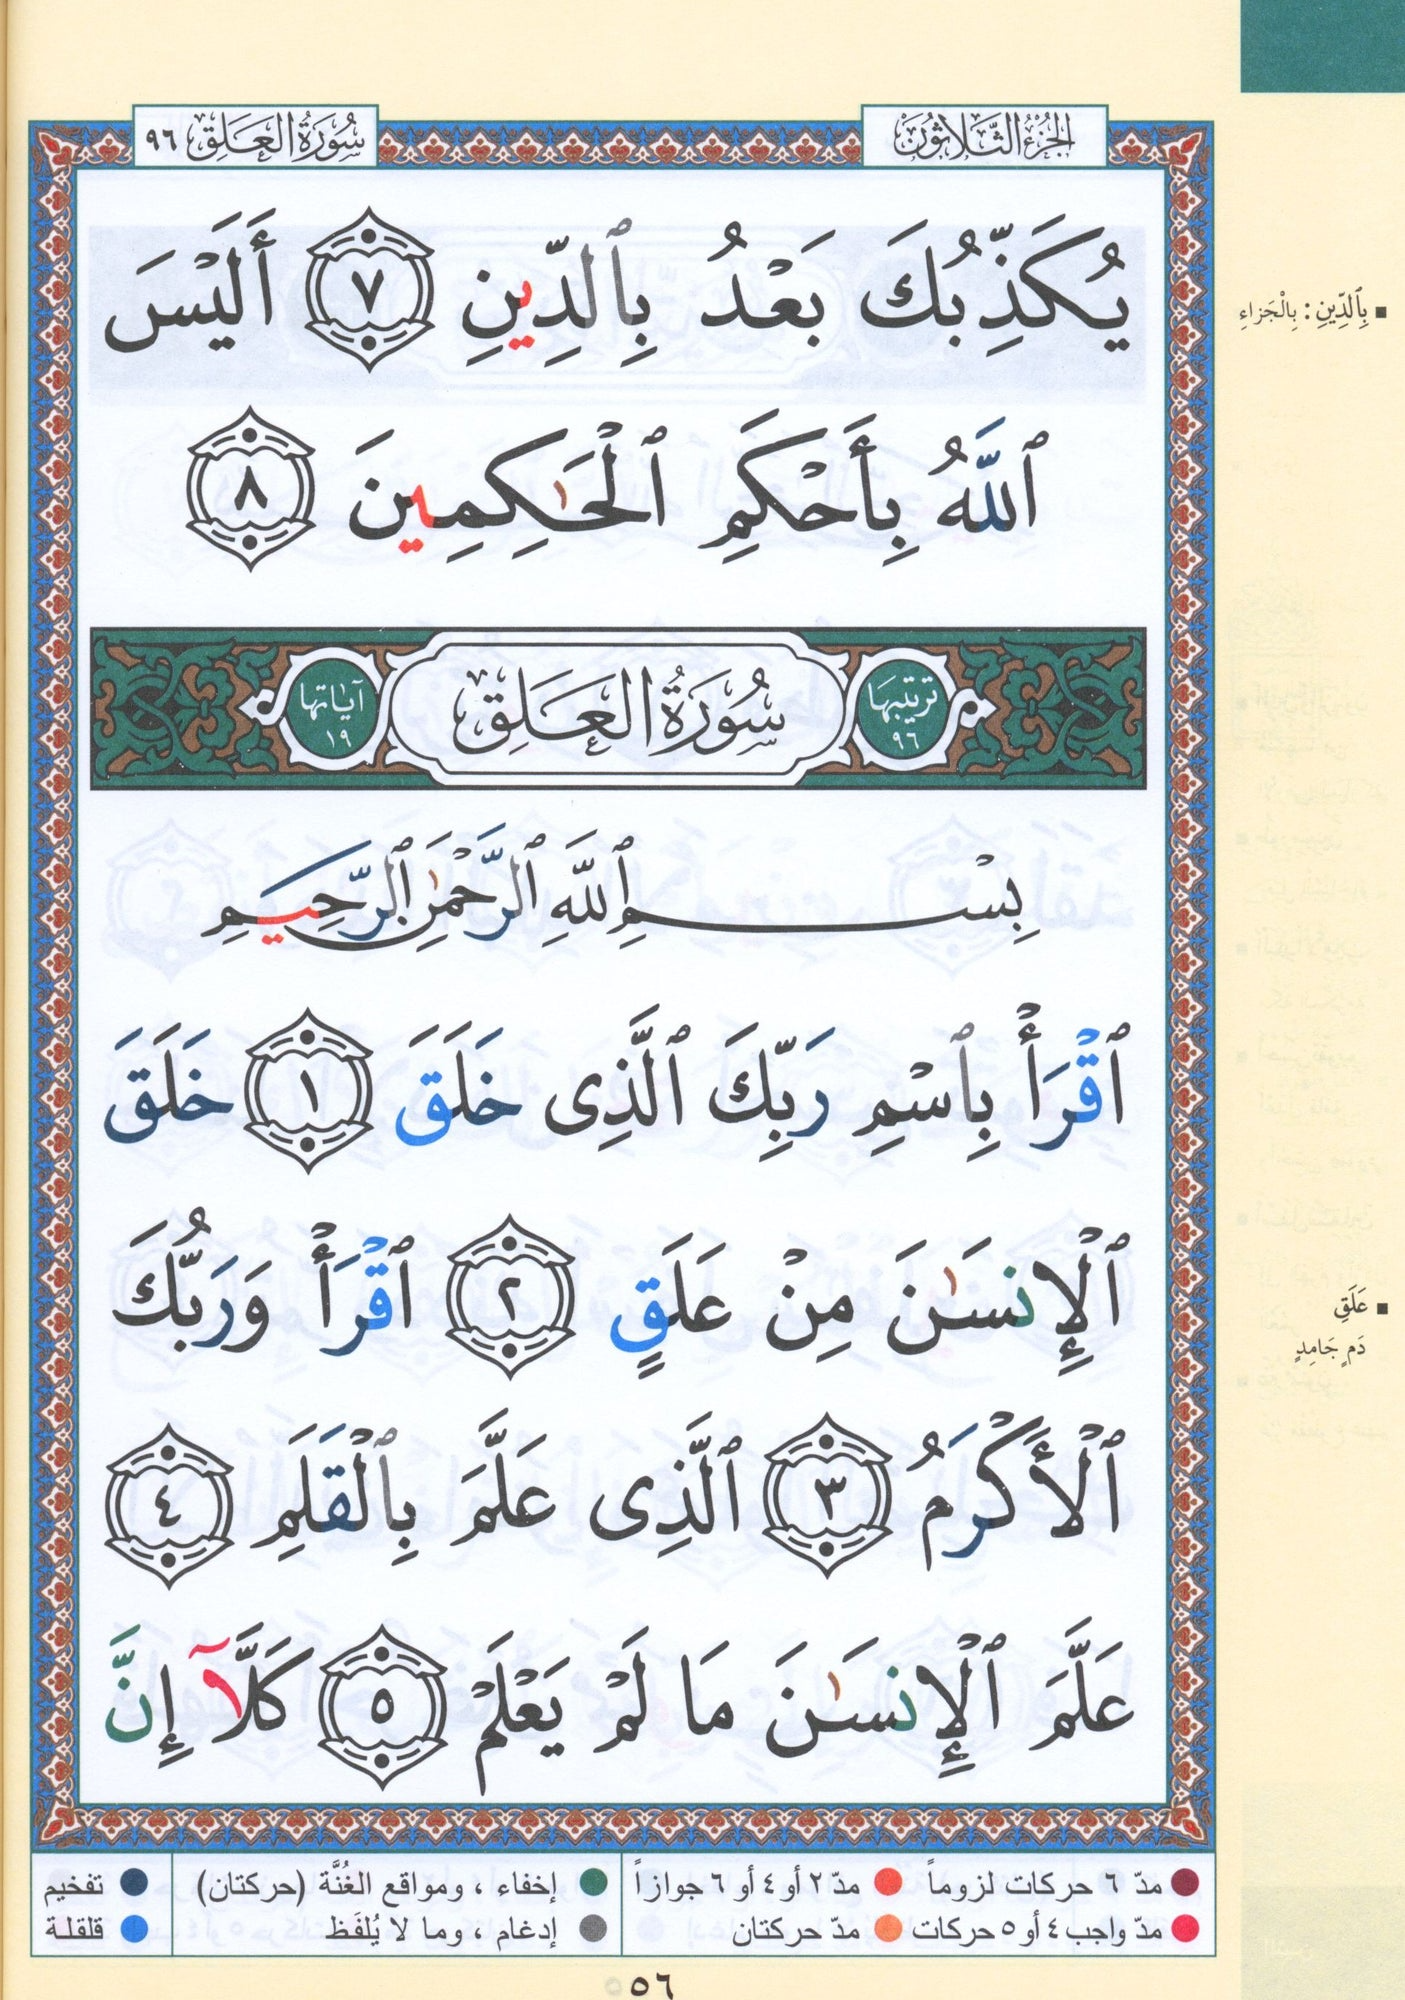 الجزء الثلاثون
سورة العلق ٩٦
يُكَذِّبُكَ بَعْدُ بِٱلدِّينِ ٧ أَلَيْسَ
بِٱلدِّينِ : بِالْجَزاءِ
ٱللَّهُ بِأَحْكَمِ ٱلْحَٰكِمِينَ ٨
ترتيبها ٩٦
سُورَةُ العَلَق
آياتها ١٩
بِسْمِ ٱللَّهِ ٱلرَّحْمَٰنِ ٱلرَّحِيمِ
ٱقْرَأْ بِٱسْمِ رَبِّكَ ٱلَّذِى خَلَقَ ١ خَلَقَ
ٱلْإِنسَٰنَ مِنْ عَلَقٍ ٢ ٱقْرَأْ وَرَبُّكَ
عَلَقٍ
دَمٍ جَامِدٍ
ٱلْأَكْرَمُ ٣ ٱلَّذِى عَلَّمَ بِٱلْقَلَمِ ٤
عَلَّمَ ٱلْإِنسَٰنَ مَا لَمْ يَعْلَمْ ٥ كَلَّآ إِنَّ
مدّ ٦ حركات لزوماً مدّ ٢ أو ٤ أو ٦ جوازاً إخفاء ، ومواقع الغُنَّة (حركتان) تفخيم
مدّ واجب ٤ أو ٥ حركات مدّ حركتان إدغام ، وما لا يُلفَظ قلقلة
٥٦